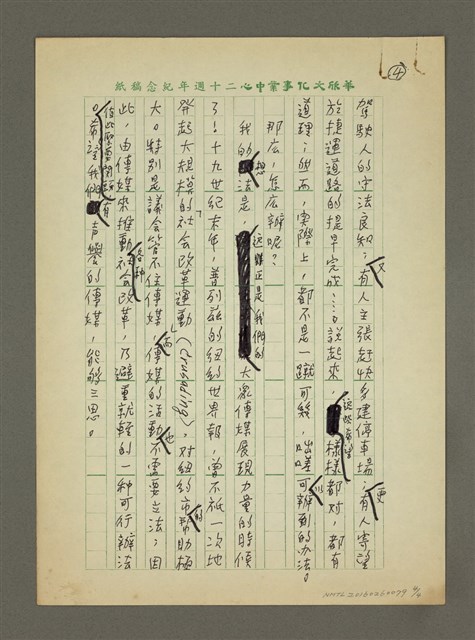 ④
華欣文化事業中心二十週年紀念稿紙
駕駛人的守法良知；又有人主張趕快多建停車場，更有人寄望
於捷運道路的提早完成……。說起來，這些希望樣樣都對，都有
道理；然而，實際上，都不是一蹴可幾，咄嗟可以辦到的办法。
那広，怎広辦呢？
我的想法是，這該正是我們的大眾傳媒展現力量的時候
了！十九世紀末年，普列兹的紐約世界報，曾不祇一次地
發起大規模的「社會改革運動」（Crusading），對紐約市的幫助極
大。特別是議會管不住傳媒，而傳媒的活動也不需要立法；因
此，由傳媒來推動各種社會改革，乃避重就輕的一種可行辦法
。希望我們有声譽的傳媒，能夠三思。
NMTL20160260079 4/4